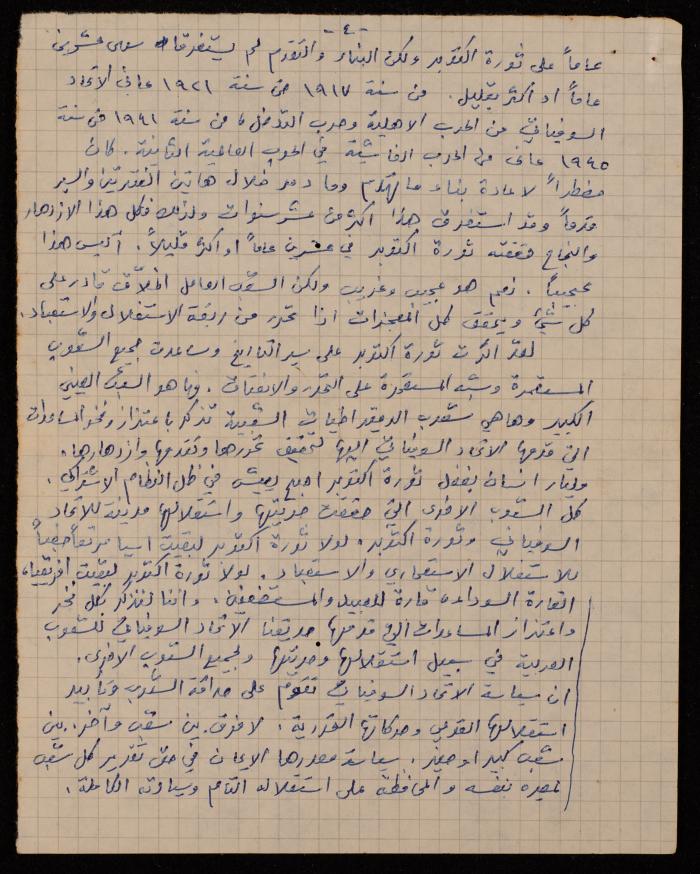 - ٤ -
عاماً على ثورة اكتوبر ولكن البناء والتقدم لم يستغرقا سوى عشرين
عاماً او اكثر بقليل. من سنة ١٩١٧ حتى سنة ١٩٢١ عانى الاتحاد
السوفياتي من الحرب الاهلية وحرب التدخل. من سنة ١٩٤١ حتى سنة
١٩٤٥ عانى من الحرب الفاشية في الحرب العالمية الثانية. كان
مضطراً لاعادة بناء ما تهدم وما دمر خلال هاتين الفترتين والسير
قدماً وقد استغرق هذا اكثر من عشر سنوات ولذلك فكل هذا الازدهار
والنجاح حققته ثورة اكتوبر في عشرين عاماً او اكثر قليلاً. أليس هذا
عجيباً. نعم هو عجيب وغريب ولكن الشعب العامل الخلاّق قادر على
كل شيء ويحقق كل المعجزات اذا تحرر من ربقة الاستغلال والاستعباد.
لقد اثرت ثورة اكتوبر على سير التاريخ وساعدت جميع الشعوب
المستعمرة وشبه المستعمرة على التحرر والانعتاق. وها هو الشعب الصيني
الكبير وها هي شعوب الديمقراطيات الشعبية تذكر باعتزاز وفخر المساعدات
التي قدمها الاتحاد السوفياتي اليها لتحقيق تحررها وتقدمها وازدهارها.
مليار انسان بفضل ثورة اكتوبر اصبح يعيش في ظل النظام الاشتراكي.
كل الشعوب الاخرى التي حققت حريتها واستقلالها مدينة للاتحاد
السوفياتي وثورة اكتوبر. لولا ثورة اكتوبر لبقيت اسيا مرتعاً خصباً
للاستغلال الاستعماري والاستعباد. لولا ثورة اكتوبر لبقيت افريقيا،
القارة السوداء، قارة للعبيد والمستضعفين. واننا لنذكر بكل فخر
واعتزاز المساعدات التي قدمها صديقنا الاتحاد السوفياتي للشعوب
العربية في سبيل استقلالها وحريتها ولجميع الشعوب الاخرى.
ان سياسة الاتحاد السوفياتي تقوم على صداقة الشعوب وتأييد
استقلالها القومي وحركاتها التحررية. لا فرق بين شعب وآخر. بين
شعب كبير او صغير. سياسة مصدرها الايمان في حق تقرير كل شعب
لمصيره بنفسه والمحافظة على استقلاله التام وسيادته الكاملة.